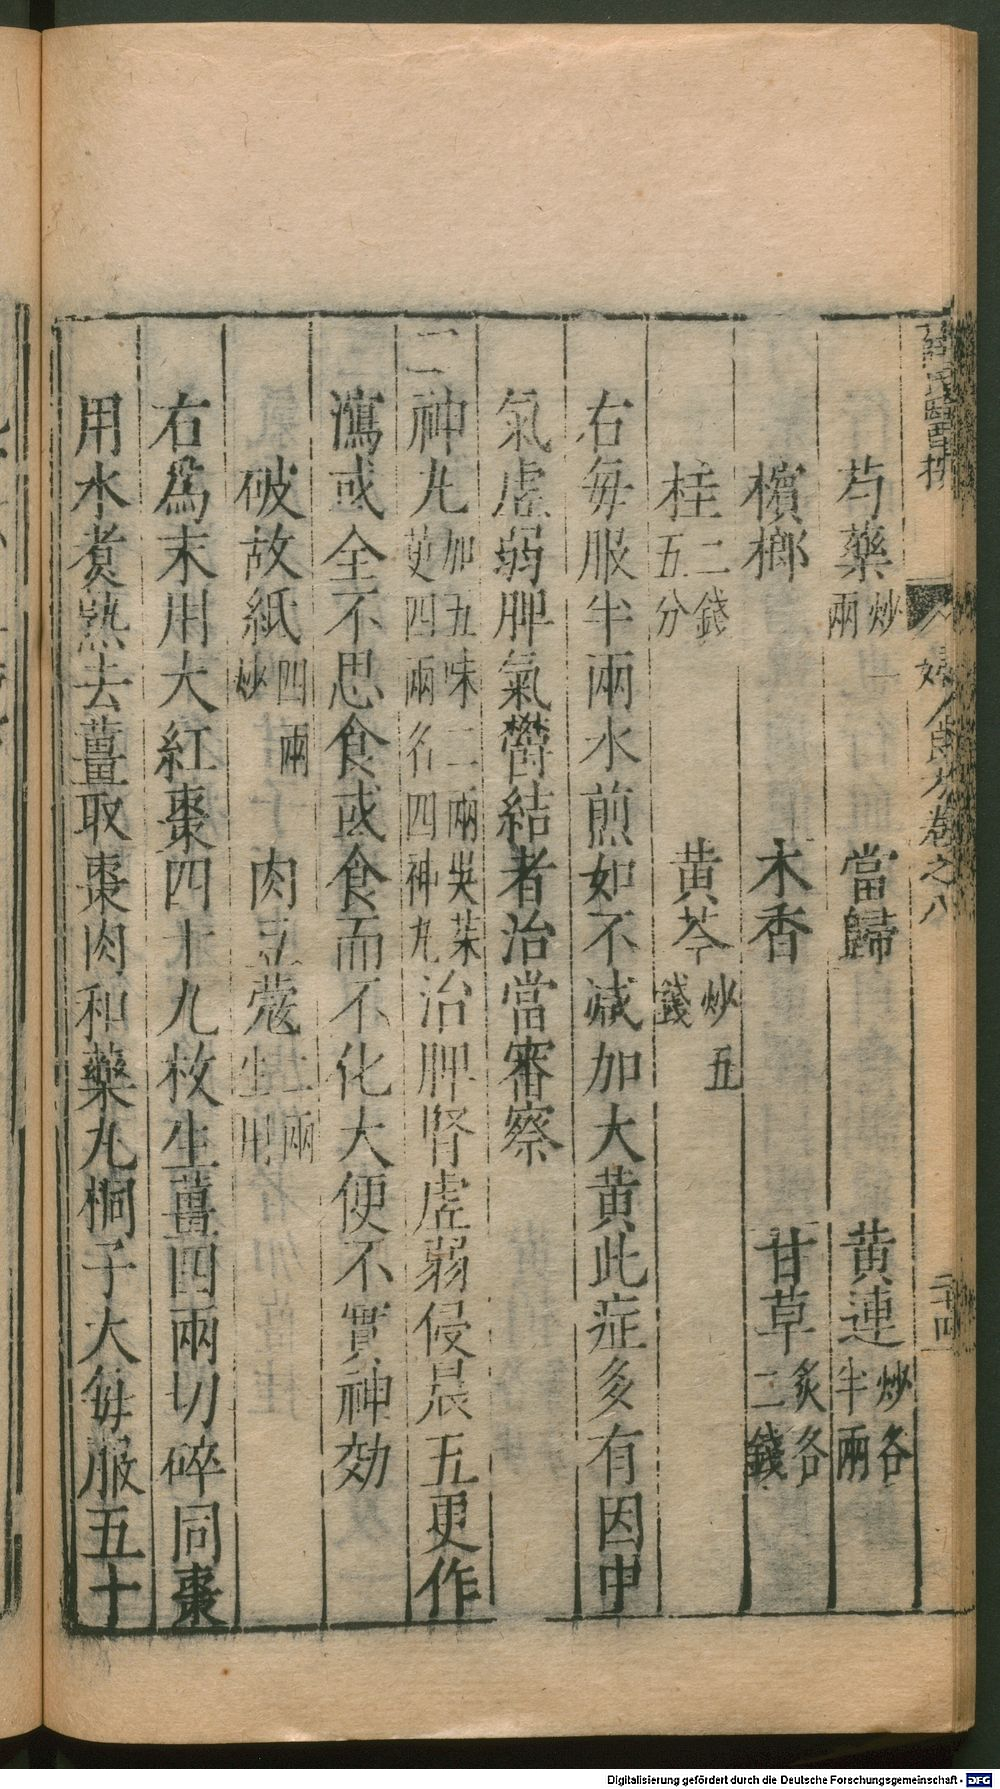 薛氏醫按 婦人良方卷之八 二十四
芍藥炒一兩 當歸 黃連炒各半兩
檳榔 木香 甘草炙各二錢
桂二錢五分 黃芩炒五錢
右每服半兩水煎如不減加大黃此症多有因中
氣虛弱脾氣鬱結者治當審察
二神丸加五味二兩吳茱萸四兩名四神丸治脾腎虛弱侵晨五更作
瀉或全不思食或食而不化大便不實神効
破故紙四兩炒 肉豆蔻二兩生用
右爲末用大紅棗四十九枚生薑四兩切碎同棗
用水煮熟去薑取棗肉和藥丸桐子大每服五十
Digitalisierung gefördert durch die Deutsche Forschungsgemeinschaft - DFG